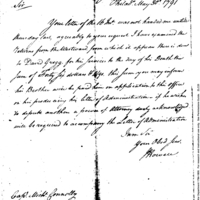 Philad. May 30th 1791
Sir
Your letter of the 16 Inst. was not handed me untill
this day. Just agreeably to your request I have examined the
returns from the Westward from which it appears there is due
to David Gregg, for his services to the day of his Death the
sum of Forty six dollars this sum you may inform
his Brother will be paid here on application to the office
on his producing his Letter of Administration if he wishes
to depute another a power of Attorney duly acknowledged
will be required to accompany the Letter of Administration
I am Sir
Your Obed Serv
J Howell
Capt. Michl Connolly